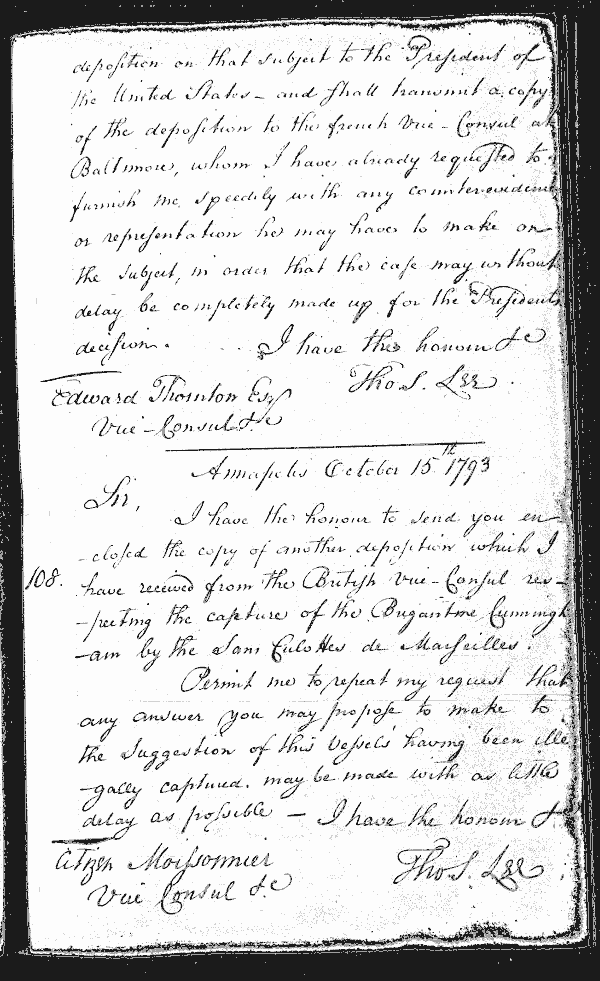 deposition on that subject to the President of
the United States – and shall transmit a copy
of the deposition to the french Vice-Consul at
Baltimore, whom I have already requested to
furnish me speedily with any counter evidence
or representation he may have to make on
the subject, in order that the case may without
delay be completely made up for the Presidents
decision. I have the honour &c
Tho S. Lee.
Edward Thornton Esq
Vice-Consul &c
Annapolis October 15th 1793
Sir,
I have the honour to send you en-
-closed the copy of another deposition which I
108. have received from the British Vice-Consul res-
-pecting the capture of the Brigantine Cunningh
-am by the Sans Culottes de Marseilles.
Permit me to repeat my request that
any answer you may propose to make to
the Suggestion of this Vessels having been ille
-gally captured. may be made with as little
delay as possible – I have the honour &c
Citizen Moissonnier
Tho S. Lee.
Vice Consul &c